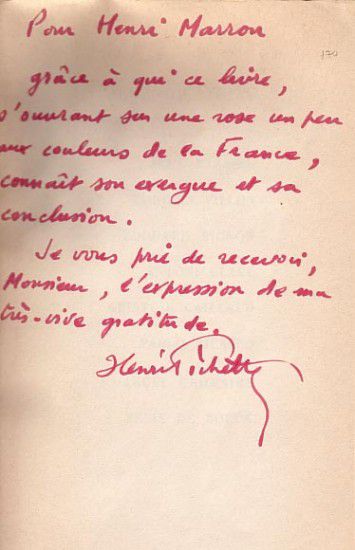 Pour Henri Marrou
grâce à qui ce livre,
s'ouvrant sur une rose un peu
aux couleurs de la France,
connaît son exergue et sa
conclusion.
Je vous prie de recevoir,
Monsieur, l'expression de ma
très-vive gratitude.
Henri Pichette